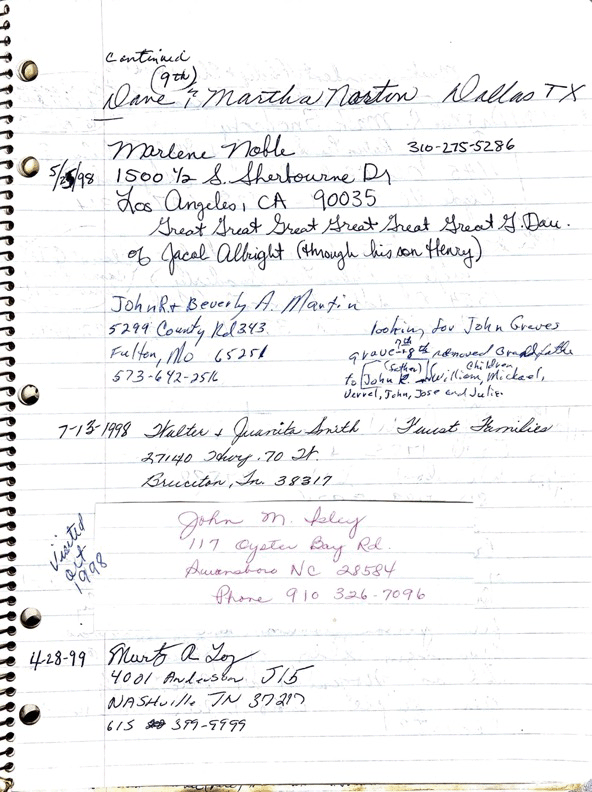 continued
(9th)
Dave & Martha Norton Dallas TX
Marlene Noble 310-275-5286
5/25/98 1500 1/2 S. Sherbourne Dr
Los Angeles, CA 90035
Great Great Great Great Great Great G. Dau.
of Jacob Albright (through his son Henry)
John R + Beverly A. Martin
5299 County Rd 343 looking for John Graves
Fulton, Mo 65251 grave 7th 8th removed Grandfather
573-642-2516 to John R (father) William, Michael, (children)
Verrel, John, Jose and Julie
7-13-1998 Walter & Juanita Smith Faust Families
27140 Hwy. 70 W.
Bruceton, Tn. 38317
John M. Isley
117 Oyster Bay Rd.
Swansboro NC 28584
Phone 910 326-7096
Visited
Oct
1998
4-28-99 A Loy
4001 Anderson J15
NAShville TN 37217
615 399-9999